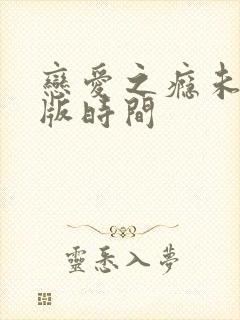 戀愛之癮未
版時間
靈悉入夢